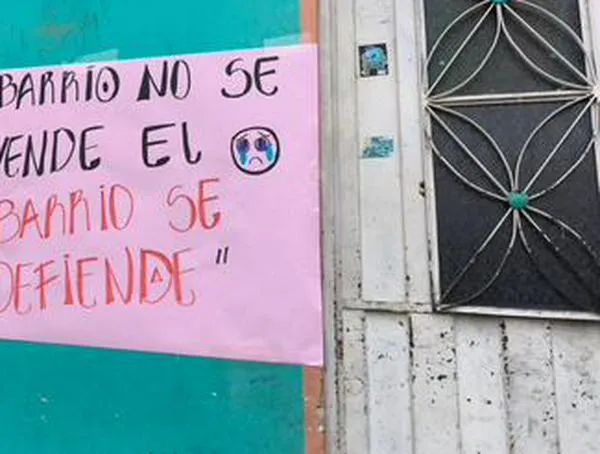 BARRIO NO SE
VENDE EL
BARRIO SE
DEFIENDE"